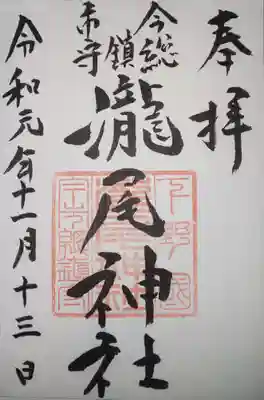 奉拝
今市
総鎮守
瀧尾神社
下野國
令和元年十一月十三日